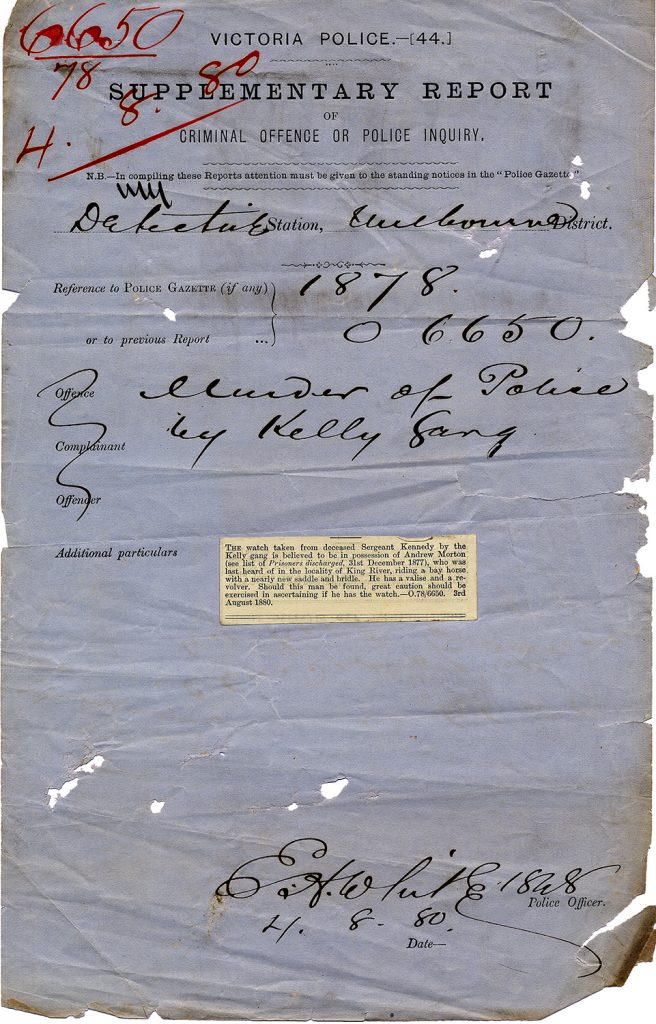 6650
78
4. 8. 80
VICTORIA POLICE.—[44.]
SUPPLEMENTARY REPORT
OF
CRIMINAL OFFENCE OR POLICE INQUIRY.
N.B.—In compiling these Reports attention must be given to the standing notices in the "Police Gazette"
Detective Station, Melbourne District.
Reference to POLICE GAZETTE (if any) 1878.
or to previous Report ... O 6650.
Offence Murder of Police
Complainant by Kelly Gang
Offender
Additional particulars
THE watch taken from deceased Sergeant Kennedy by the
Kelly gang is believed to be in possession of Andrew Morton
(see list of Prisoners discharged, 31st December 1877), who was
last heard of in the locality of King River, riding a bay horse
with a nearly new saddle and bridle. He has a valise and a re-
volver. Should this man be found, great caution should be
exercised in ascertaining if he has the watch.—O.78/6650. 3rd
August 1880.
E. H. White
Police Officer.
4. 8. 80.
Date—